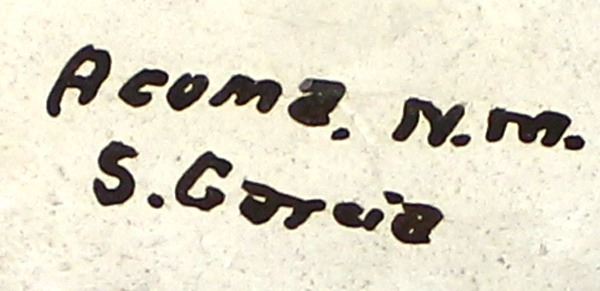 Acoma. N.M.
S. Garcia